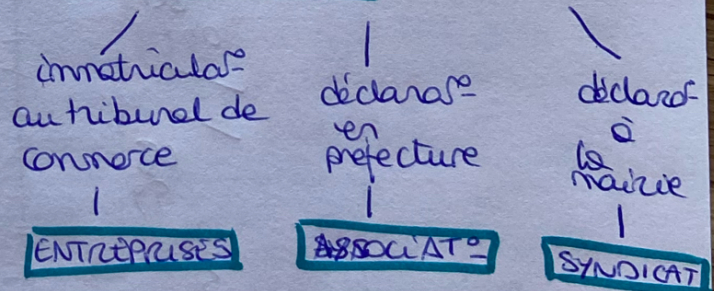 immatricula𝑠°
au tribunal de
commerce
ENTREPRISES
déclaras°
en
préfecture
ASSOCIAT°
déclaras°
à
la
mairie
SYNDICAT